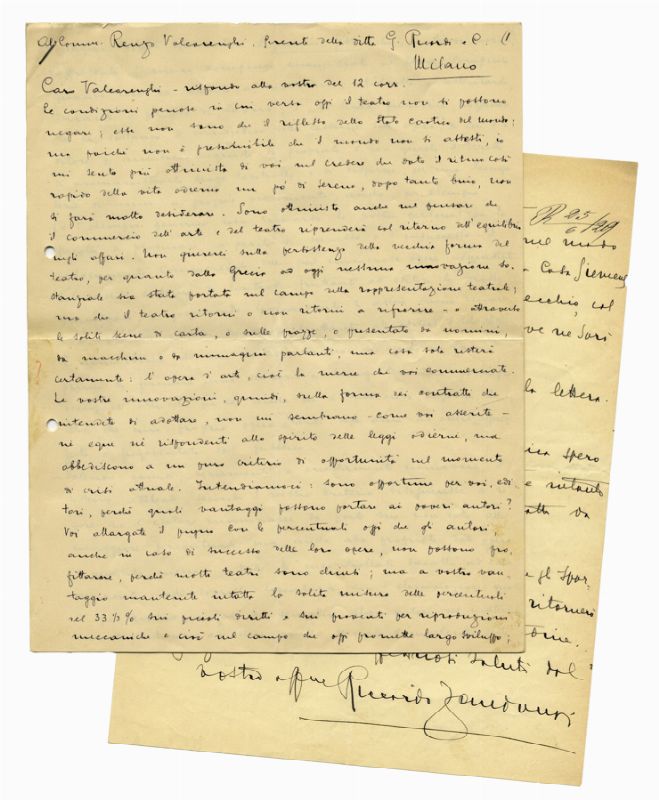 Al Comm. Renzo Valcarenghi. Gerente della ditta G. Ricordi e C.
Milano
Caro Valcarenghi - rispondo alla vostra del 12 corr.
Le condizioni penose in cui versa oggi il teatro non si possono
negare; esse non sono che il riflesso dello stato caotico del mondo;
ma poiché non è presumibile che il mondo non si assesti, io
mi sento più ottimista di voi nel credere che dato il ritmo così
rapido della vita odierna un pò di sereno, dopo tanto buio, non
si farà molto desiderare. Sono ottimista anche nel pensare che
il commercio dell'arte e del teatro riprenderà col ritorno dell'equilibrio
negli affari. Non giurerei sulla persistenza della vecchia forma del
teatro, per quanto dalla Grecia ad oggi nessuna innovazione so-
stanziale sia stata portata nel campo della rappresentazione teatrale;
ma che il teatro ritorni o non ritorni a rifiorire - o attraverso
le solite scene di carta, o sulle piazze, o presentato da uomini,
da macchine o da immagini parlanti, una cosa sola resterà
certamente: l'opera d'arte, cioè la merce che voi commerciate.
Le vostre innovazioni, quindi, sulla forma dei contratti che
intendete di adottare, non mi sembrano - come voi asserite -
nè eque nè rispondenti allo spirito delle leggi odierne, ma
obbediscono a un puro criterio di opportunità nel momento
di crisi attuale. Intendiamoci: sono opportune per voi, edi
tori, perchè quali vantaggi possono portare ai poveri autori?
Voi allargate il pugno con le percentuali oggi che gli autori,
anche in caso di successo delle loro opere, non possono pro
fittarne, perchè molti teatri sono chiusi; ma a vostro van
taggio mantenete intatta la solita misura delle percentuali
del 33⅓% sui piccoli diritti e sui proventi per riproduzioni
meccaniche e cioè nel campo che oggi promette largo sviluppo;
R 25/6/29
nel modo
Casa Siemens
vecchio, col
ve ne sarò
la lettera.
spero
e intanto
da
gli Spar-
ritornerò
saluti dal
vostro aff.mo Riccardo Zandonai